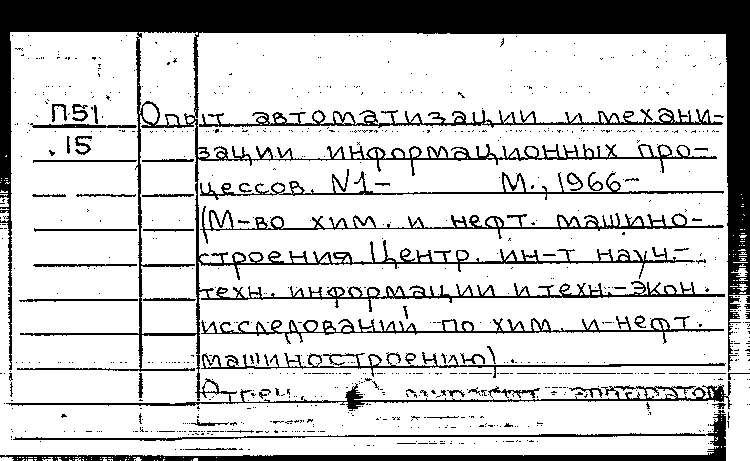 П51 Опыт автоматизации и механи-
.15 зации информационных про-
цессов. N1- М., 1966-
(М-во хим. и нефт. машино-
строения. Центр. ин-т науч.-
техн. информации и техн.-экон.
исследований по хим. и нефт.
машиностроению).
Отпеч. аппаратом